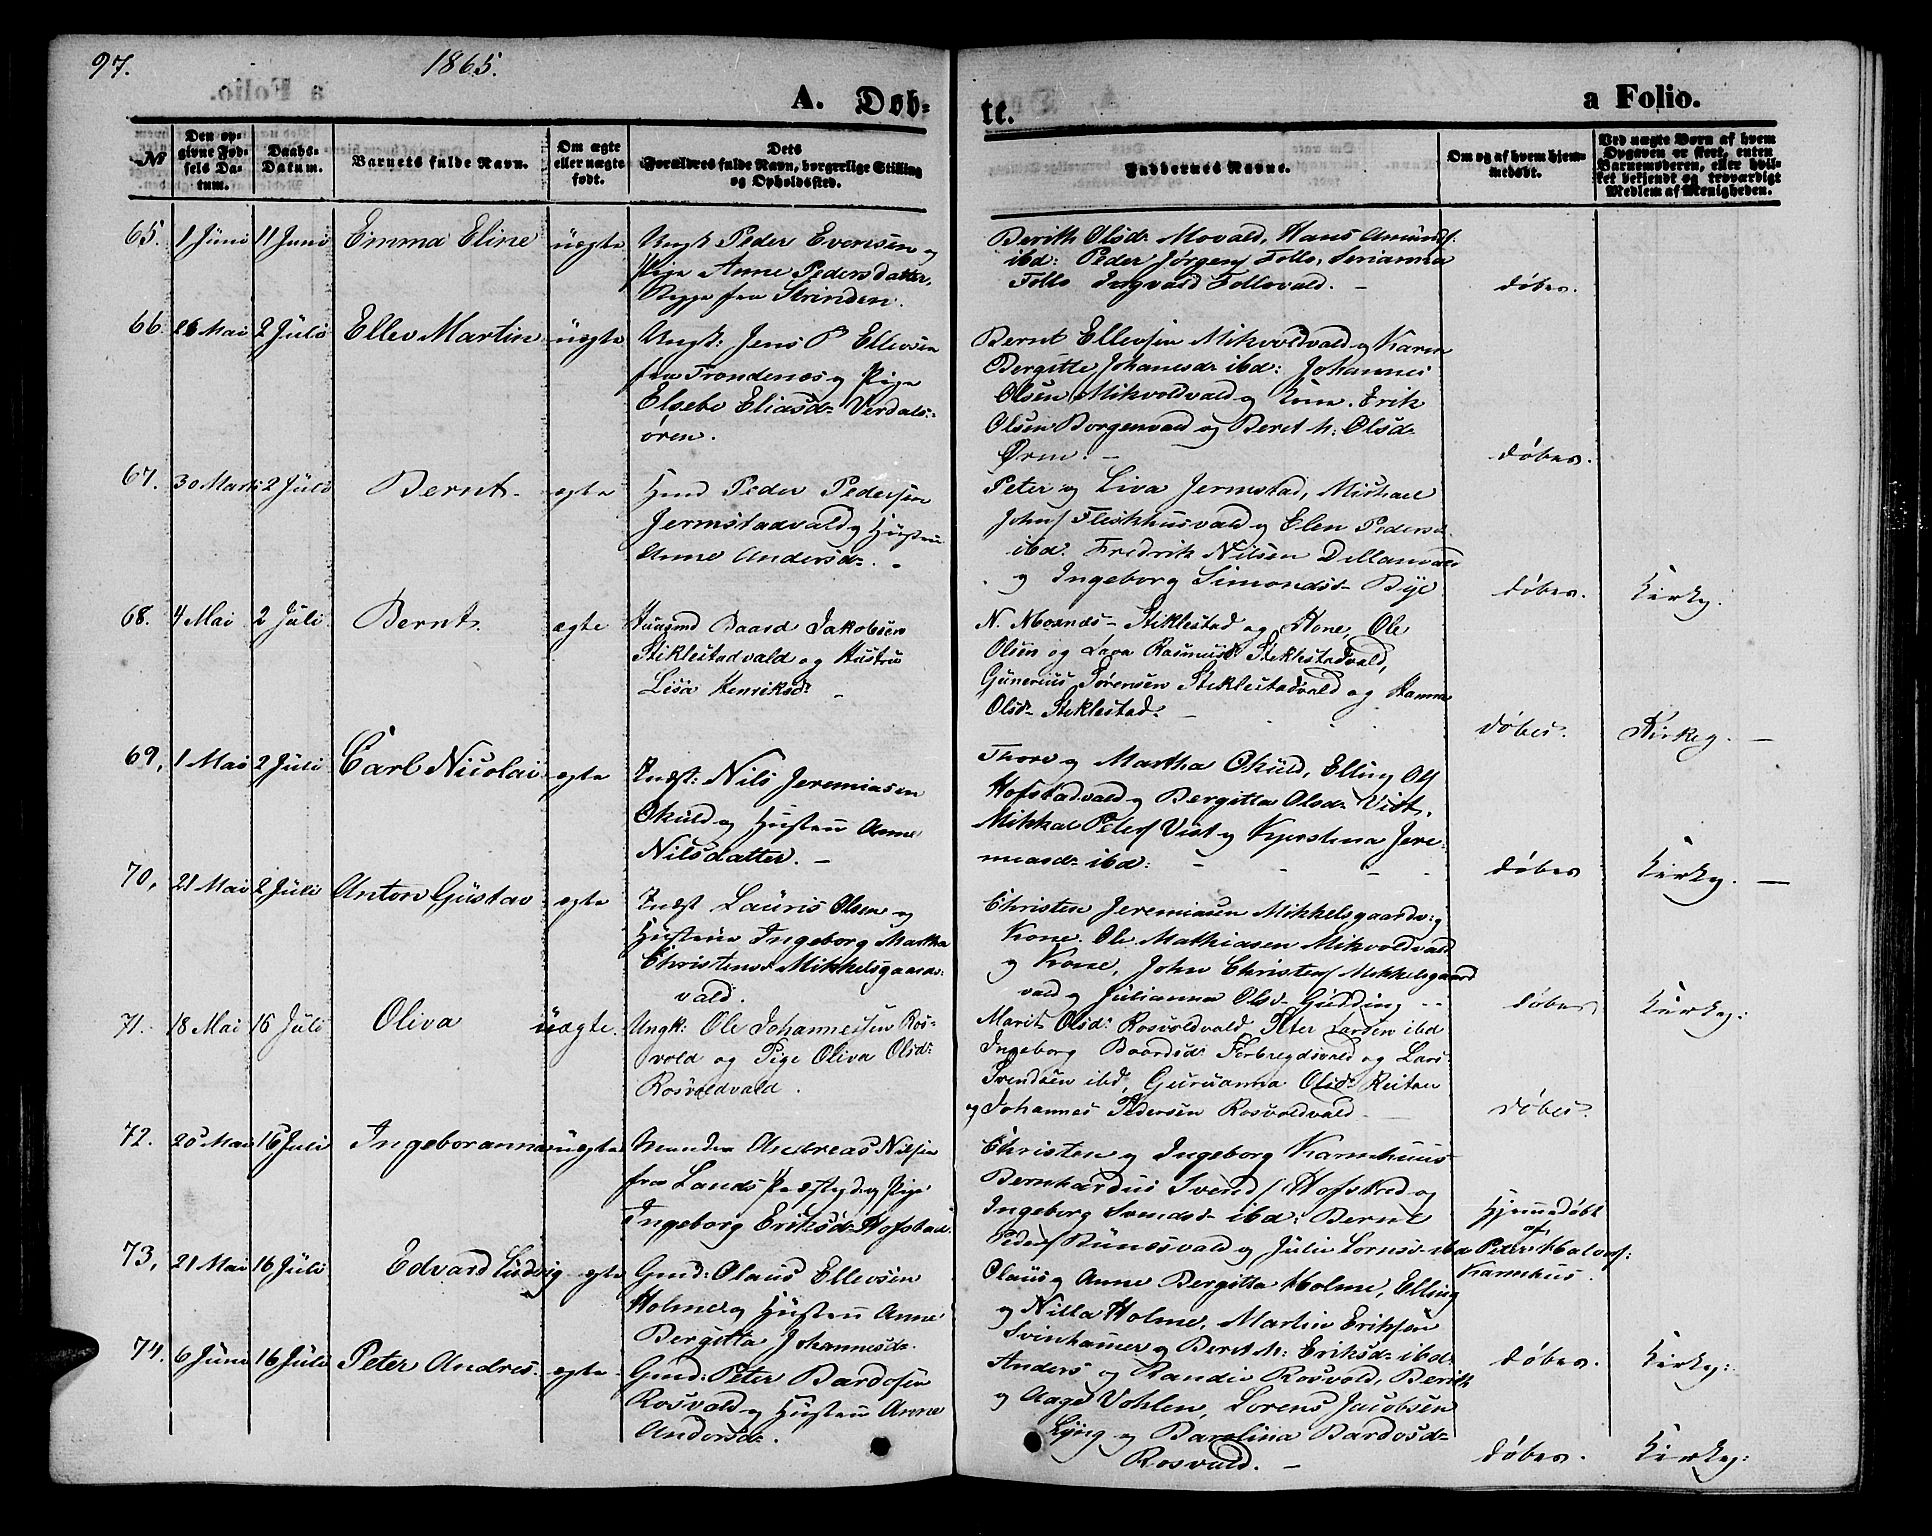 97. 1865.
A. Døb-
te.
a Folio.
№
Den op-
givne Fød-
sels Da-
tum.
Daabs-
Datum.
Barnets fulde Navn.
Om ægte
eller uægte
født.
Dets
Forældres fulde Navn, borgerlige Stilling
og Opholdssted.
Faddernes Navne.
Om og af hvem hjem-
medøbt.
Ved uægte Børn af hvem
Opgaven er skeet, enten
Barnemoderen, eller hvil-
ket bekjendt og troværdigt
Medlem af Menigheden.
65. 1 Juni 11 Juni Emma Eline uægte
Ungk Peder Evensen og
Pige Anne Pedersdatter,
Begge fra Strinden.
Berith Olsd. Movald, Hans Amunds.
ibd: Peder Jørgens Follo, Serianna
Follo Ingvald Follovald. –
døbes.
66. 26 Mai 2 Juli Ellev Martin uægte
Ungk: Jens P Ellevsen
fra Trondenes og Pige
Elsebe Eliasd. Verdals-
øren.
Bernt Ellevsen Mikvoldvald og Karn
Bergitte Johanesd. ibd: Johannes
Olsen Mikvoldvald og Kone. Erik
Olsen Borgenvald og Beret M: Olsd.
Ørm. –
døbes.
67. 30 Marts 2 Juli Bernt. ægte
Hmd Peder Pedersen
Jermstadvald og Hustru
Anne Andersd. –
Peter og Liva Jermstad, Michael
Johns Fleskhusvald og Elen Pedersd.
ibd. Fredrik Nilsen Dillanvald
og Ingeborg Simonds. Bye
døbes. Kirkg.
68. 4 Mai 2 Juli Bernt. ægte
Huusmd Baard Jakobsen
Stiklestadvald og Hustru
Lisa Henriksd. –
N. Moxnæs Stiklestad og Kone, Ole
Olsen og Lava Rasmusd. Stiklestadvald,
Gunerius Sørensen Stiklestadvald og Hanna
Olsd. Stiklestad. –
døbes. Kirkeg. –
69. 1 Mai 2 Juli Carl Nicolai ægte
Indst: Nils Jeremiasen
Okuld og Hustru Anne
Nilsdatter. –
Thore og Martha Okuld, Elling Ols
Hofstadvald og Bergitta Olsd. Vist,
Mikkal Peters Vist og Kjerstena Jere-
miasd. ibd:
døbes Kirkg. –
70. 21 Mai 2 Juli Anton Gustav ægte
Indst Lauris Olsen og
Hustru Ingeborg Martha
Christensd. Mikkelsgaards-
vald.
Christen Jeremiasen Mikkelsgaardv. og
Kone. Ole Mathiasen Mikvoldvald
og Kone, John Christens Mikkelsgaard
vald og Julianna Olsd. Gudding
døbes Kirkg:
71. 18 Mai 16 Juli Oliva uægte.
Ungk: Ole Johannessen Ros-
vold og Pige Oliva Olsd:
Rosvoldvald.
Marit Olsd: Rosvoldvald. Peter Larsen ibd
Ingeborg Baardsd. Forbregdsvald og Lars
Svendsen ibd, Guruanna Olsd. Reitan
og Johannes Pedersen Rosvoldvald. –
døbes.
72. 20 Mai 16 Juli Ingeboranna uægte
Andreas Nilsen
fra Lands Præstgd. og Pige
Ingeborg Eriksd. Hofstad.
Christen og Ingeborg Karmhuus
Bernhardus Svends Hofstad og
Ingeborg Svendsd. ibd: Bernt
Peders Bunesvald og Julie Lornsd. ibd
Hjemmedøbt
af
Peter Halvors:
Karmhus.
73. 21 Mai 16 Juli Edvard Ludvig ægte
Gmd: Olaus Ellevsen
Holme og Hustru Anne
Bergitta Johannesd.
Olaus og Anne Bergitta Holme, Elling
og Nilla Holme, Martin Eriksen
Svinhamer og Beret M: Eriksd. ibd.
døbes. Kirkg:
74. 6 Juni 16 Juli Peter Andres. ægte
Gmd: Peter Bardosen
Rosvold og Hustru Anne
Andersd.
Anders og Randie Rosvold, Berith
og Aage Vohlen, Lorens Jacobsen
Lyng og Barolina Bardosd.
Rosvald. –
døbes. Kirkg: